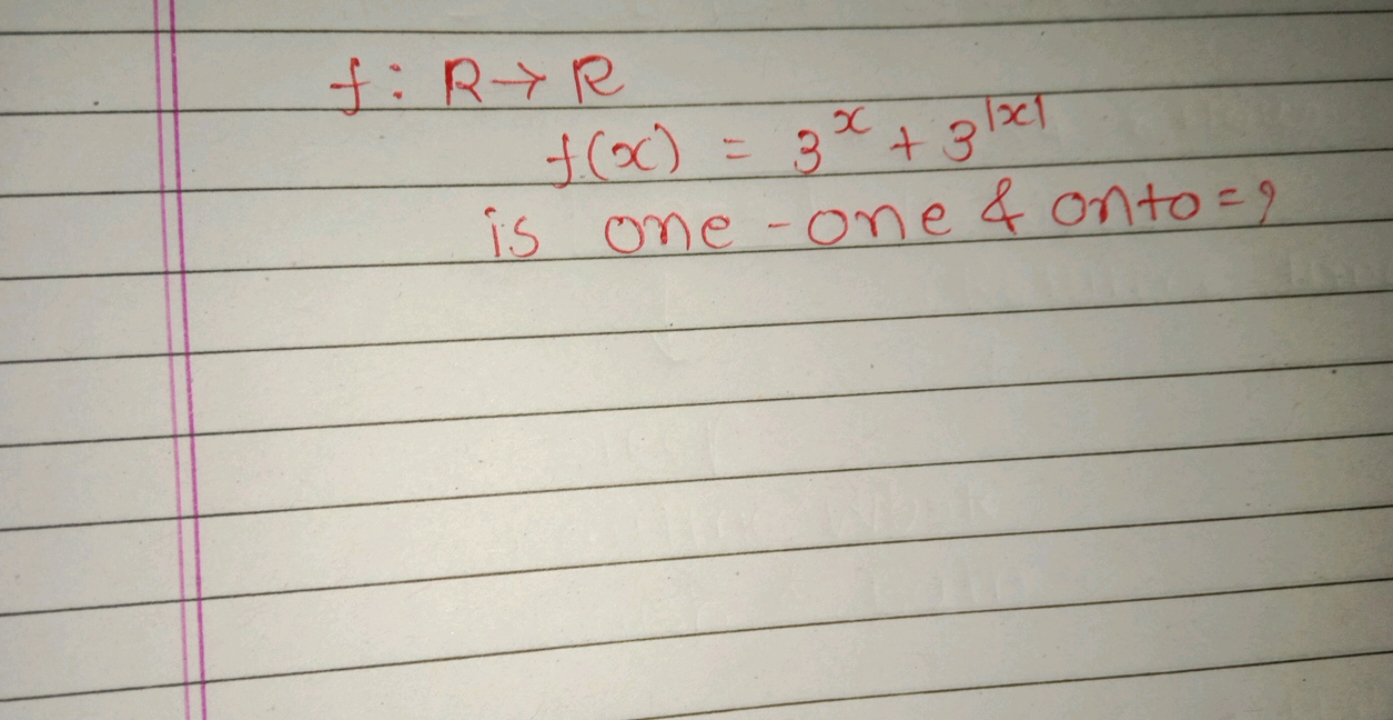 f: R→R
f(x) = 3^x + 3^|x|
is one-one & onto=?